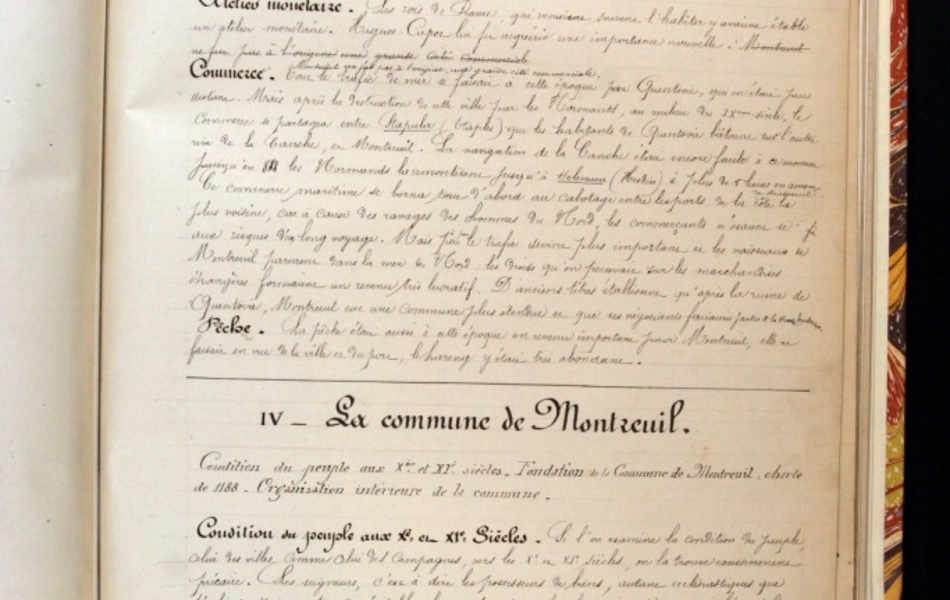 Atelier monétaire. Les rois de France, qui venaient souvent l'habiter y avaient établi
un atelier monétaire. Hugues-Capet lui fit acquérir une importance nouvelle. Montreuil
ne fut pas à l'origine une grande cité commerciale
Montreuil ne fut pas à l'origine, une grande cité commerciale.
Commerce. Tout le trafic de mer se faisait à cette époque par Quentovic, qui en était peu
distant. Mais après la destruction de cette ville par les Normands, au milieu du IXème siècle, le
commerce se partagea entre Stapula (Etaples) que les habitants de Quentovic bâtirent sur l'autre
rive de la Canche, et Montreuil. La navigation de la Canche était encore facile à ce moment
puisqu'en les Normands la remontèrent jusqu'à Helenum (Hesdin) à plus de 5 lieues en amont
de Montreuil
Ce commerce maritime se borna tout d'abord au cabotage entre les ports de la côte la
plus voisine, car à cause des ravages des hommes du Nord, les commerçants n'osaient se fi
aux risques d'un long voyage. Mais peu le trafic devint plus important et les vaisseaux de
Montreuil parurent dans la mer du Nord: les droits qu'on percevait sur les marchandises
étrangères formaient un revenu très lucratif. D'anciens titres établissent qu'après la ruine de
Quentovic, Montreuil eut une commune plus étendue et que ses négociants faisaient partie de la
Pêche. La pêche était aussi à cette époque un revenu important pour Montreuil, elle se
faisait en vue de la ville et du port, le hareng y était très abondant.
IV - La commune de Montreuil.
Condition du peuple aux Xe et XIe siècles. Fondation de la Commune de Montreuil, charte
de 1188 - Organisation intérieure de la commune.
Condition du peuple aux Xe et XIe Siècles. Si l'on examine la condition du peuple,
celui des villes comme celui des campagnes, vers les Xe et XIe siècles, on la trouve
précaire. Les seigneurs, c'est à dire les possesseurs de biens, autant ecclésiastiques que